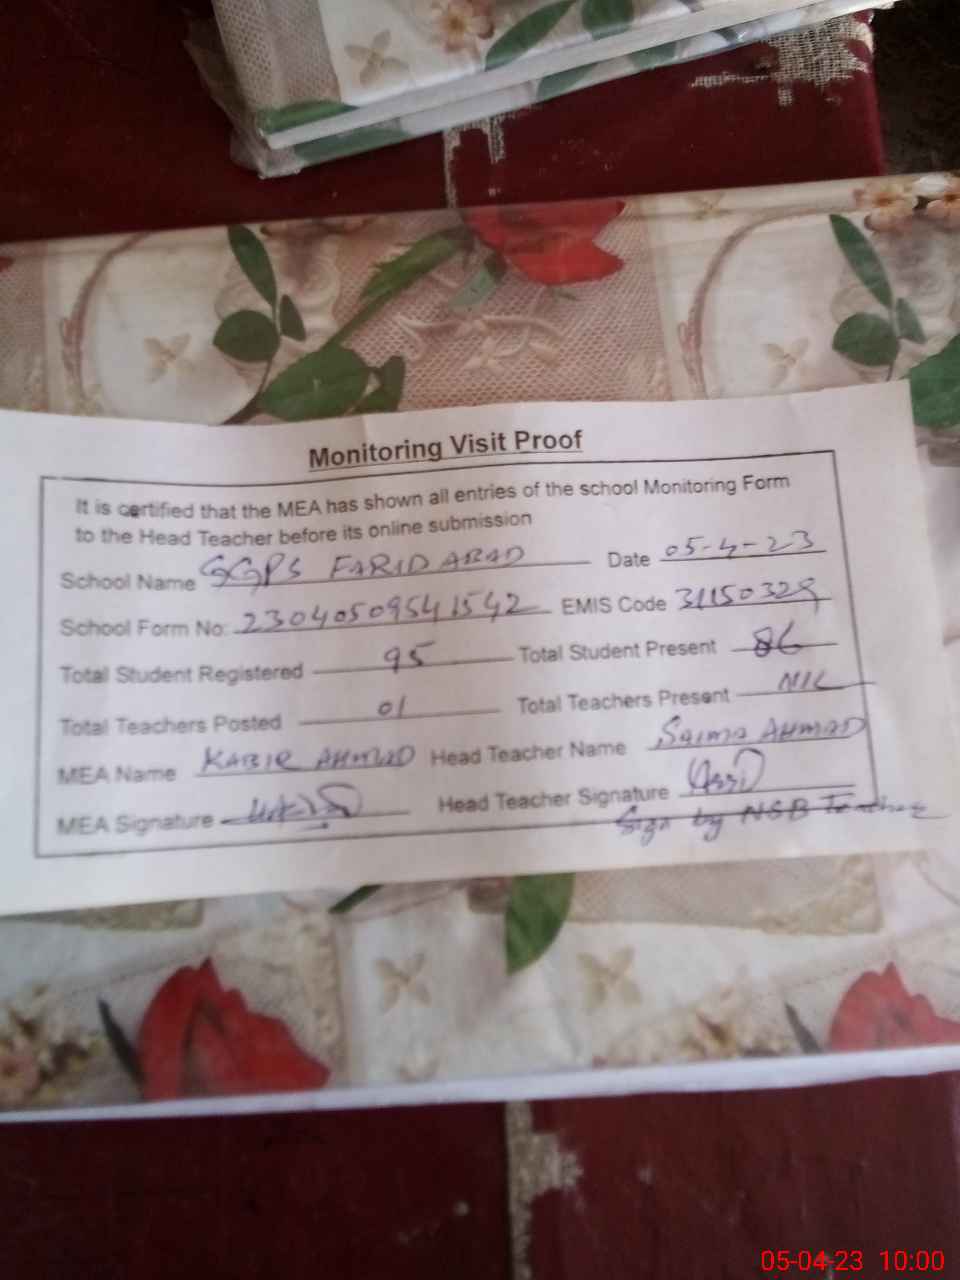 Monitoring Visit Proof
It is certified that the MEA has shown all entries of the school Monitoring Form
to the Head Teacher before its online submission
School Name GGPS FARID ABAD Date 05-4-23
School Form No: 23040509541542 EMIS Code 31150329
Total Student Registered 95 Total Student Present 86
Total Teachers Posted 01 Total Teachers Present NIL
MEA Name KABIR AHMAD Head Teacher Name SAIMA AHMAD
MEA Signature Head Teacher Signature
Sign by NSB Teacher
05-04-23 10:00